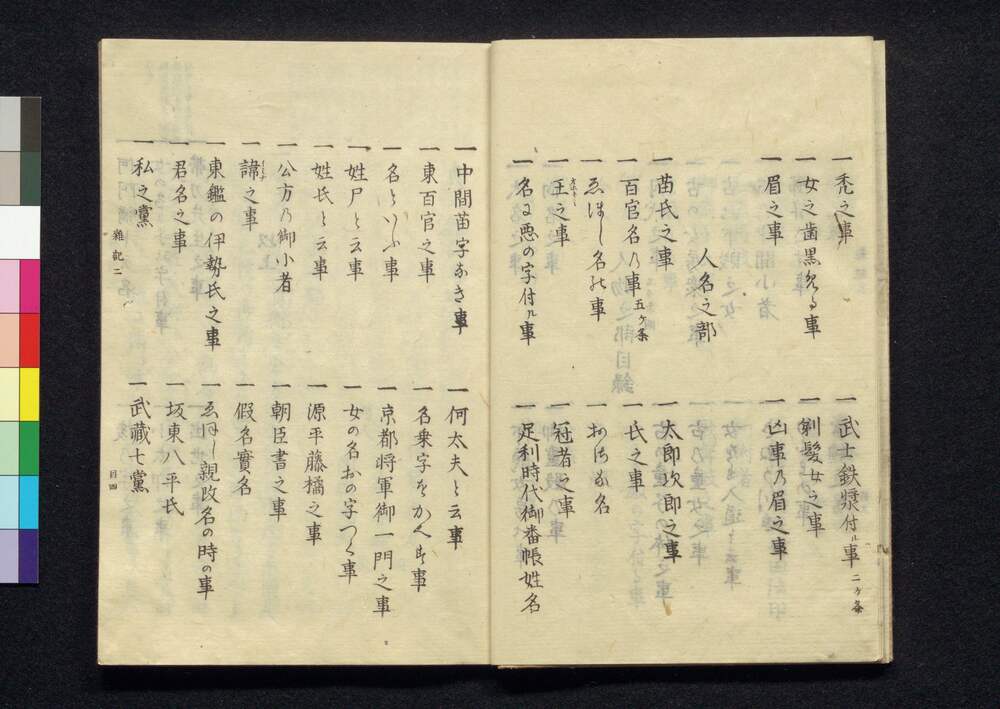 一 禿之事 一 武士鉄漿付ル事 二ケ条
一 女之歯黒免る事 一 剃髪女之事
一 眉之事 一 凶事乃眉之事
人名之部
一 苗氏之事 一 太郎次郎之事
一 百官名乃事 五ケ条 一 氏之事
一 ゑほし名の事 一 おさな名
一 王之事 一 冠者之事
一 名に悪の字付ル事 一 足利時代御番帳姓名
一 中間苗字なき事 一 何太夫と云事
一 東百官之事 一 名乗字をかへす事
一 名といふ事 一 京都将軍御一門之事
一 姓尸と云事 一 女の名おの字つく事
一 姓氏と云事 一 源平藤橘之事
一 公方乃御小者 一 朝臣書之事
一 諱之事 一 假名實名
一 東鑑の伊勢氏之事 一 ゑほし親改名の時の事
一 君名之事 一 坂東八平氏
一 私之黨 一 武藏七黨
雑記二 目四